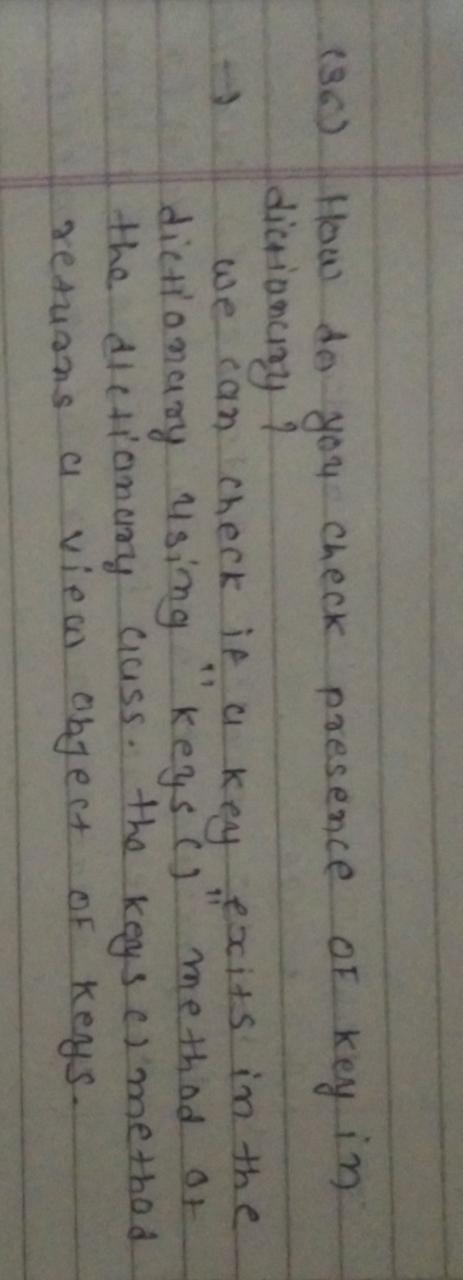 (36) How do you check presence OF key in
dictionary ?
→ we can check if a key exits in the
dictionary using "keys()" method of
the dictionary class. the keys() method
returns a view object OF keys.